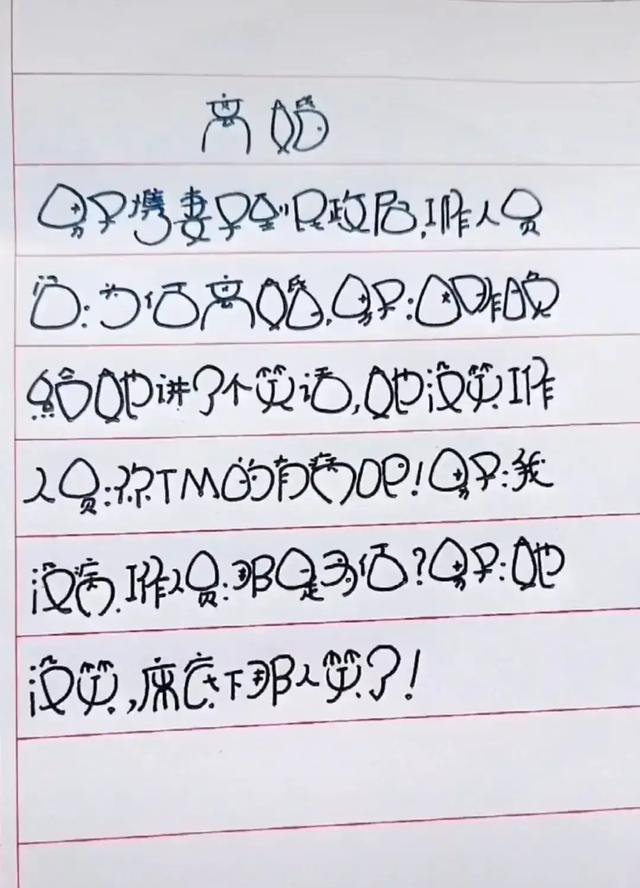 离婚
男子携妻子到民政局,工作人员
问:为何离婚,男子:因昨晚
给她讲了个笑话,她没笑工作
人员:你TM的有病吧!男子:我
没病.工作人员:那是为何?男子:她
没笑,床底下那人笑了!